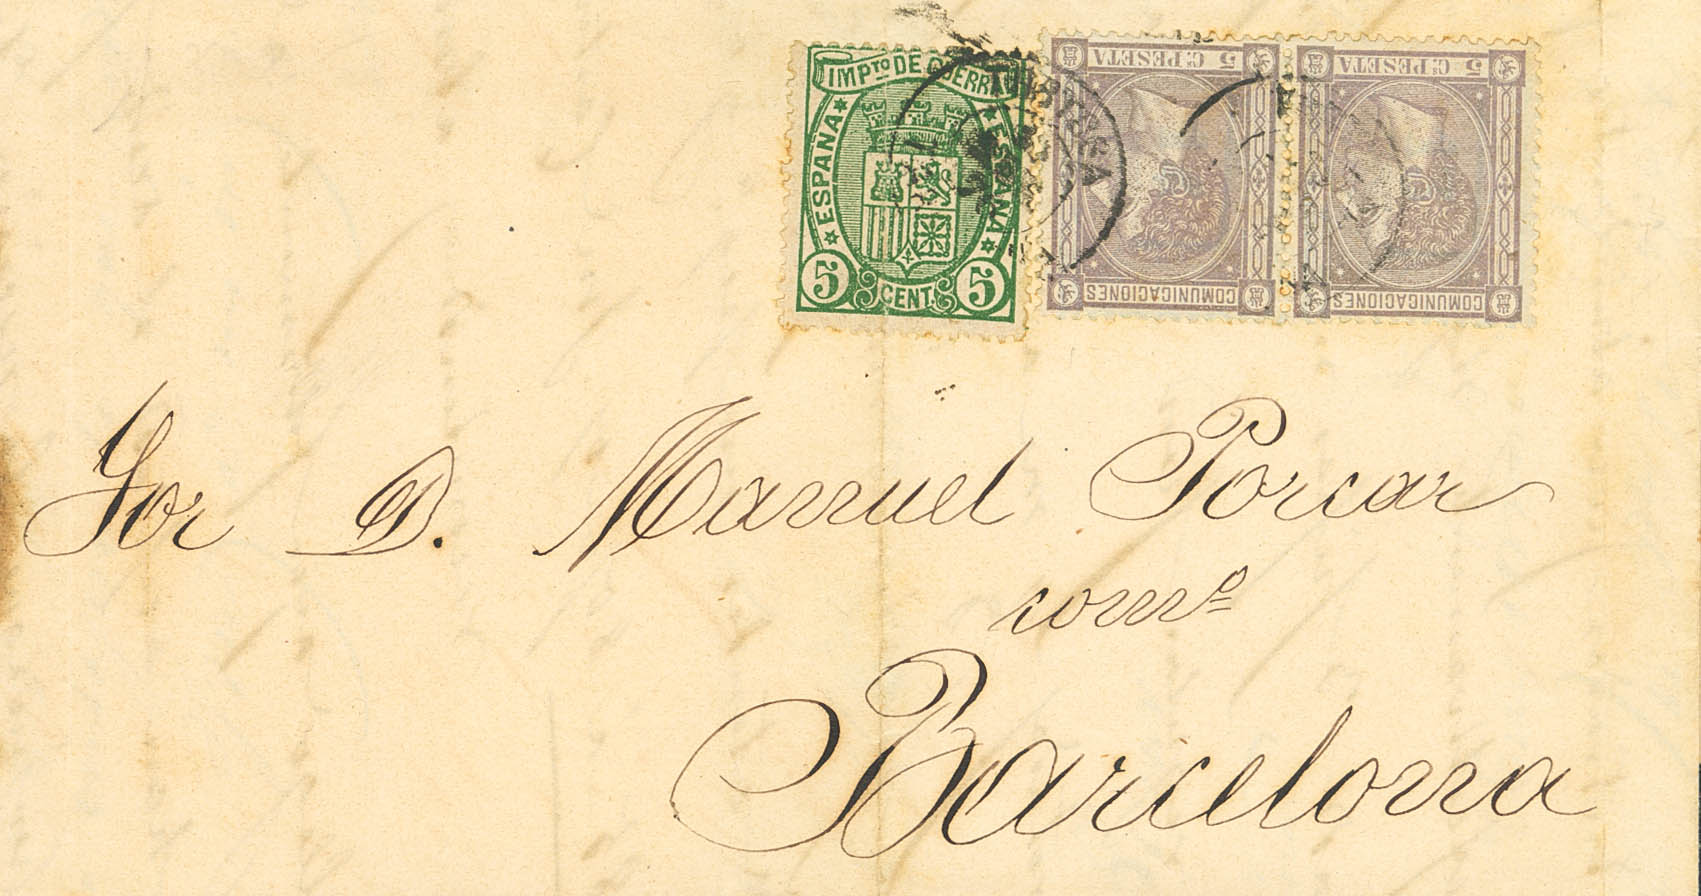 IMPTO DE GUERRA
ESPAÑA
ESPAÑA
5 CENT. 5
5 CS PESETA
COMUNICACIONES
5 CS PESETA
COMUNICACIONES
Sor D. Manuel Porcar
como
Barcelona